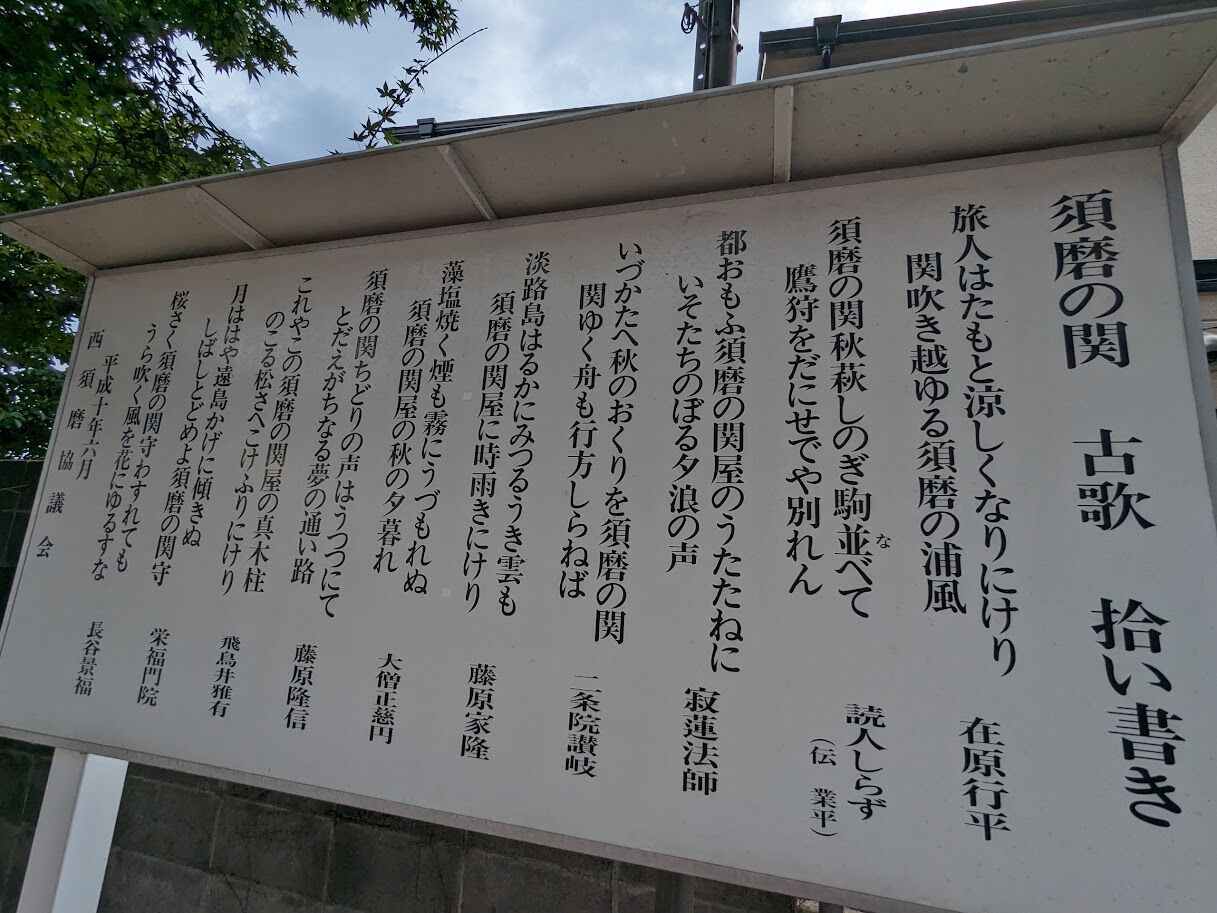 須磨の関 古歌 拾い書き
旅人はたもと涼しくなりにけり
関吹き越ゆる須磨の浦風 在原行平
須磨の関秋萩しのぎ駒並べて
な
鷹狩をだにせでや別れん 読人しらず
(伝 業平)
都おもふ須磨の関屋のうたたねに
いそたちのぼる夕浪の声 寂蓮法師
いづかたへ秋のおくりを須磨の関
関ゆく舟も行方しらねば 二条院讃岐
淡路島はるかにみつるうき雲も
須磨の関屋に時雨きにけり 藤原家隆
藻塩焼く煙も霧にうづもれぬ
須磨の関屋の秋の夕暮れ 大僧正慈円
須磨の関ちどりの声はうつつにて
とだえがちなる夢の通い路 藤原隆信
これやこの須磨の関屋の真木柱
のこる松さへこけふりにけり 飛鳥井雅有
月ははや遠島かげに傾きぬ
しばしとどめよ須磨の関守 栄福門院
桜さく須磨の関守わすれても
うら吹く風を花にゆるすな 長谷景福
平成十年六月
西須磨協議会